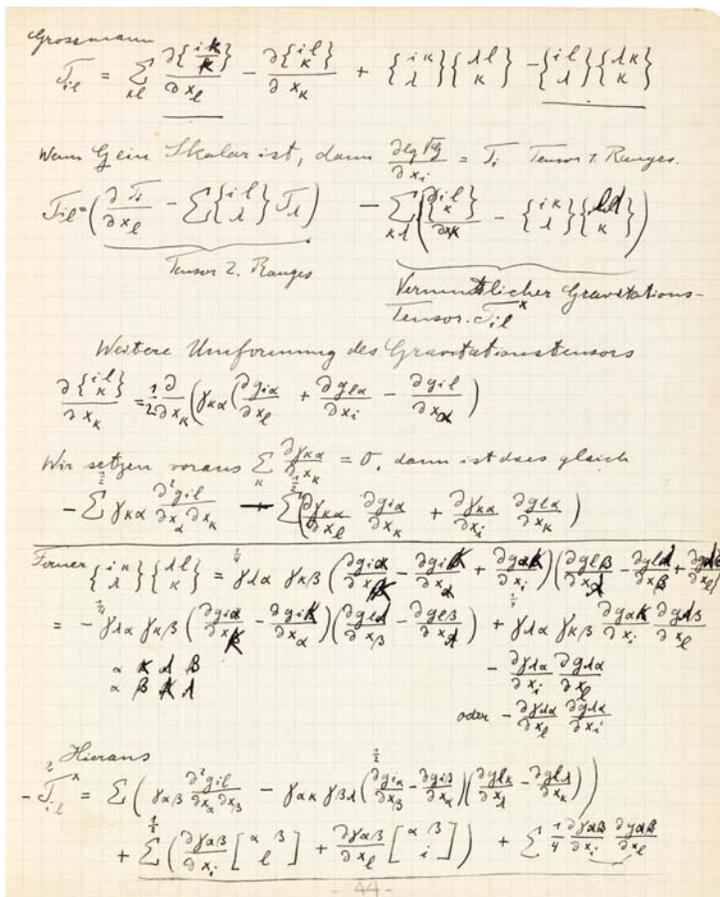 Grossmann
T_il = Σ_κl ∂{i κ / κ}/∂x_l − ∂{i l / κ}/∂x_κ + {i κ / λ}{λ l / κ} − {i l / λ}{λ κ / κ}
Wenn G ein Skalar ist, dann ∂lg√G/∂x_i = T_i Tensor 1. Ranges.
T_il = (∂T_i/∂x_l − Σ{i l / λ}T_λ) − Σ_κλ(∂{i l / κ}/∂x_κ − {i κ / λ}{l λ / κ})
Tensor 2. Ranges
Vermutlicher Gravitations-
Tensor. T_il^x
Weitere Umformung des Gravitationstensors
∂{i l / κ}/∂x_κ = 1/2 ∂/∂x_κ (γ_κα (∂g_iα/∂x_l + ∂g_lα/∂x_i − ∂g_il/∂x_α)
Wir setzen voraus Σ_κ ∂γ_κα/∂x_κ = 0, dann ist dies gleich
− 1/2 Σ γ_κα ∂²g_il/∂x_α∂x_κ − 1/2 Σ(∂γ_κα/∂x_l ∂g_iα/∂x_κ + ∂γ_κα/∂x_i ∂g_lα/∂x_κ)
Ferner {i κ / λ}{λ l / κ} = 1/4 γ_λα γ_κβ (∂g_iα/∂x_κ − ∂g_iκ/∂x_α + ∂g_ακ/∂x_i)(∂g_lβ/∂x_λ − ∂g_lλ/∂x_β + ∂g_λβ/∂x_l)
= − 1/4 γ_λα γ_κβ (∂g_iα/∂x_κ − ∂g_iκ/∂x_α)(∂g_lλ/∂x_β − ∂g_lβ/∂x_λ) + 1/4 γ_λα γ_κβ ∂g_ακ/∂x_i ∂g_λβ/∂x_l
α κ λ β
α β κ λ
− ∂γ_λα/∂x_i ∂g_λα/∂x_l
oder − ∂γ_λα/∂x_l ∂g_λα/∂x_i
Hieraus
− 2 T_il^x = Σ (γ_αβ ∂²g_il/∂x_α∂x_β − 1/2 γ_ακ γ_βλ (∂g_iα/∂x_β − ∂g_iβ/∂x_α)(∂g_lκ/∂x_λ − ∂g_lλ/∂x_κ))
+ 1/2 Σ (∂γ_αβ/∂x_i [α β / l] + ∂γ_αβ/∂x_l [α β / i]) + Σ 1/4 ∂γ_αβ/∂x_i ∂g_αβ/∂x_l
- 44 -